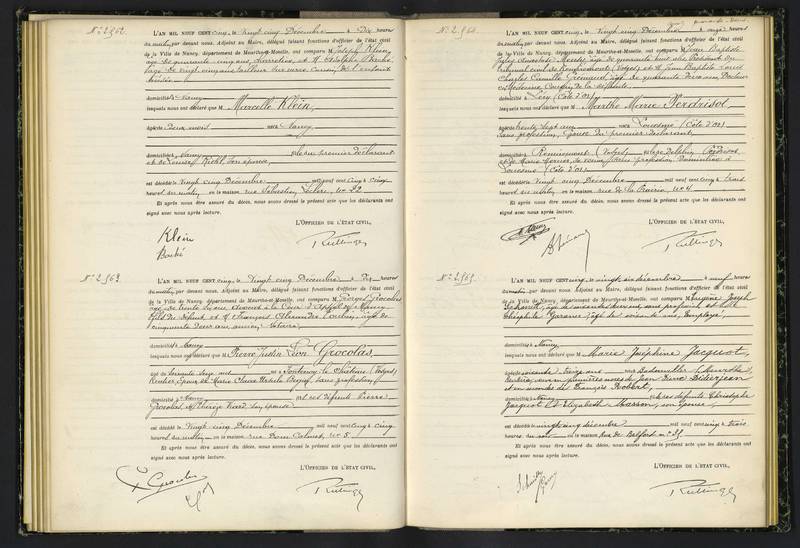 N° 2.962
L'AN MIL NEUF CENT cinq, le vingt cinq Décembre à Dix heures
du matin, par devant nous, Adjoint au Maire, délégué faisant fonctions d'officier de l'état civil
de la Ville de Nancy, département de Meurthe-et-Moselle, ont comparu M. Joseph Klein,
âgé de quarante cinq ans,
domiciliés à Nancy
lesquels nous ont déclaré que M. Marcelle Klein,
âgée de Deux mois née à Nancy
domiciliée à Nancy fille du premier déclarant
et de Louise son épouse,
est décédée le vingt cinq Décembre mil neuf cent cinq à cinq
heures du matin en la maison rue Sébastien Leclerc, n° 22
Et après nous être assuré du décès, nous avons dressé le présent acte que les déclarants ont
signé avec nous après lecture.
L'OFFICIER DE L'ÉTAT CIVIL,
Klein
N° 2.963
L'AN MIL NEUF CENT cinq, le vingt cinq Décembre à Dix heures
du matin, par devant nous, Adjoint au Maire, délégué faisant fonctions d'officier de l'état civil
de la Ville de Nancy, département de Meurthe-et-Moselle, ont comparu M. Georges Grocolas
âgé de trente avocat à la Cour d'Appel de Nancy
fils du défunt et M. François Alexandre âgé de
cinquante deux ans, ancien notaire,
domiciliés à Nancy
lesquels nous ont déclaré que M. Pierre Justin Léon Grocolas,
âgé de soixante sept ans né à Fontenoy le Château (Vosges)
Rentier, époux de Marie Claire sans profession
domicilié à Nancy fils des défunts Pierre
Grocolas et Thérèse son épouse
est décédé le vingt cinq Décembre mil neuf cent cinq à cinq
heures du matin en la maison rue Dom Calmet, n° 5
Et après nous être assuré du décès, nous avons dressé le présent acte que les déclarants ont
signé avec nous après lecture.
L'OFFICIER DE L'ÉTAT CIVIL,
N° 2.964
L'AN MIL NEUF CENT cinq, le vingt cinq Décembre à onze heures
du matin, par devant nous, Adjoint au Maire, délégué faisant fonctions d'officier de l'état civil
de la Ville de Nancy, département de Meurthe-et-Moselle, ont comparu M. Jean Baptiste
âgé de quarante huit ans, Président du
Tribunal civil de Remiremont (Vosges) et M. Jean Baptiste Louis
Charles Camille âgé de quarante deux ans, Docteur
en Médecine, Cousin de la défunte,
domiciliés à Léry (Côte d'Or)
lesquels nous ont déclaré que M. Marthe Marie Perdrisot,
âgée de trente sept ans née à Louesme (Côte d'Or)
sans profession, épouse du premier déclarant,
domiciliée à Remiremont (Vosges) fille de Delphin Perdrisot,
et de Marie sans profession, domiciliée à
Louesme (Côte d'Or)
est décédée le vingt cinq Décembre mil neuf cent cinq à trois
heures du matin en la maison rue de la Prairie n° 4
Et après nous être assuré du décès, nous avons dressé le présent acte que les déclarants ont
signé avec nous après lecture.
L'OFFICIER DE L'ÉTAT CIVIL,
N° 2.965
L'AN MIL NEUF CENT cinq, le vingt six décembre à neuf heures
du matin, par devant nous, Adjoint au Maire, délégué faisant fonctions d'officier de l'état civil
de la Ville de Nancy, département de Meurthe-et-Moselle, ont comparu M. Eugène Joseph
âgé de soixante ans, sans profession et M.
Théophile âgé de soixante ans, Employé
domiciliés à Nancy
lesquels nous ont déclaré que M. Marie Joséphine Jacquot,
âgée de soixante treize ans née à Badonviller (Meurthe)
Rentière, veuve en premières noces de Jean Didierjean
et en secondes de François Robert,
domiciliée à Nancy fille des défunts Christophe
Jacquot et Elizabeth Masson, son épouse
est décédée le vingt cinq décembre mil neuf cent cinq à trois
heures du soir en la maison Rue de Belfort n° 25
Et après nous être assuré du décès, nous avons dressé le présent acte que les déclarants ont
signé avec nous après lecture.
L'OFFICIER DE L'ÉTAT CIVIL,